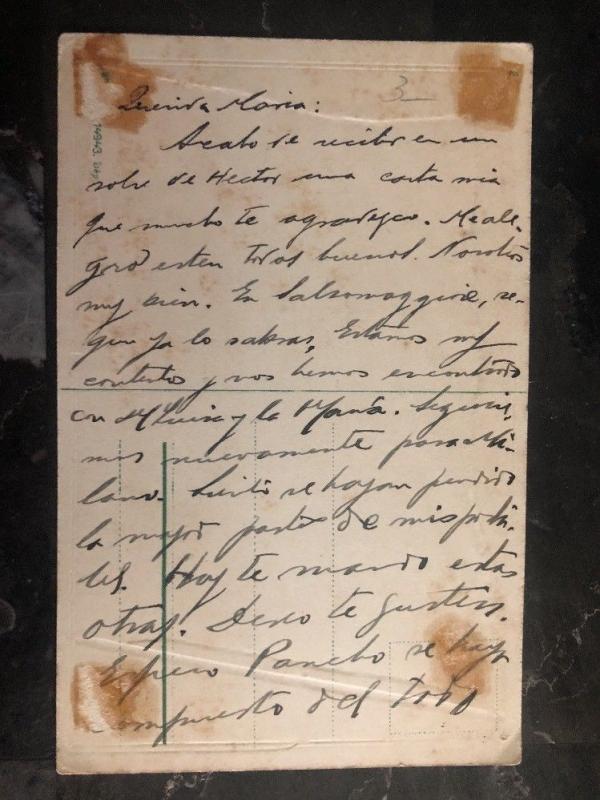 3
Querida Maria:
Acabo de recibir en un
sobre de Hector una carta mia
que mucho te agradezco. Me ale-
gro esten todos buenos. Nosotros
muy bien. En Salsomaggiore, se-
gun ya lo sabras. Estamos muy
contentos y nos hemos encontrado
con y la Maria. Seguire-
mos nuevamente para Mi-
lano. Siento se hayan perdido
la mayor parte de mis posta-
les. Hoy te mando estas
otras. Deseo te gusten.
Espero Pancho se haya
compuesto del todo